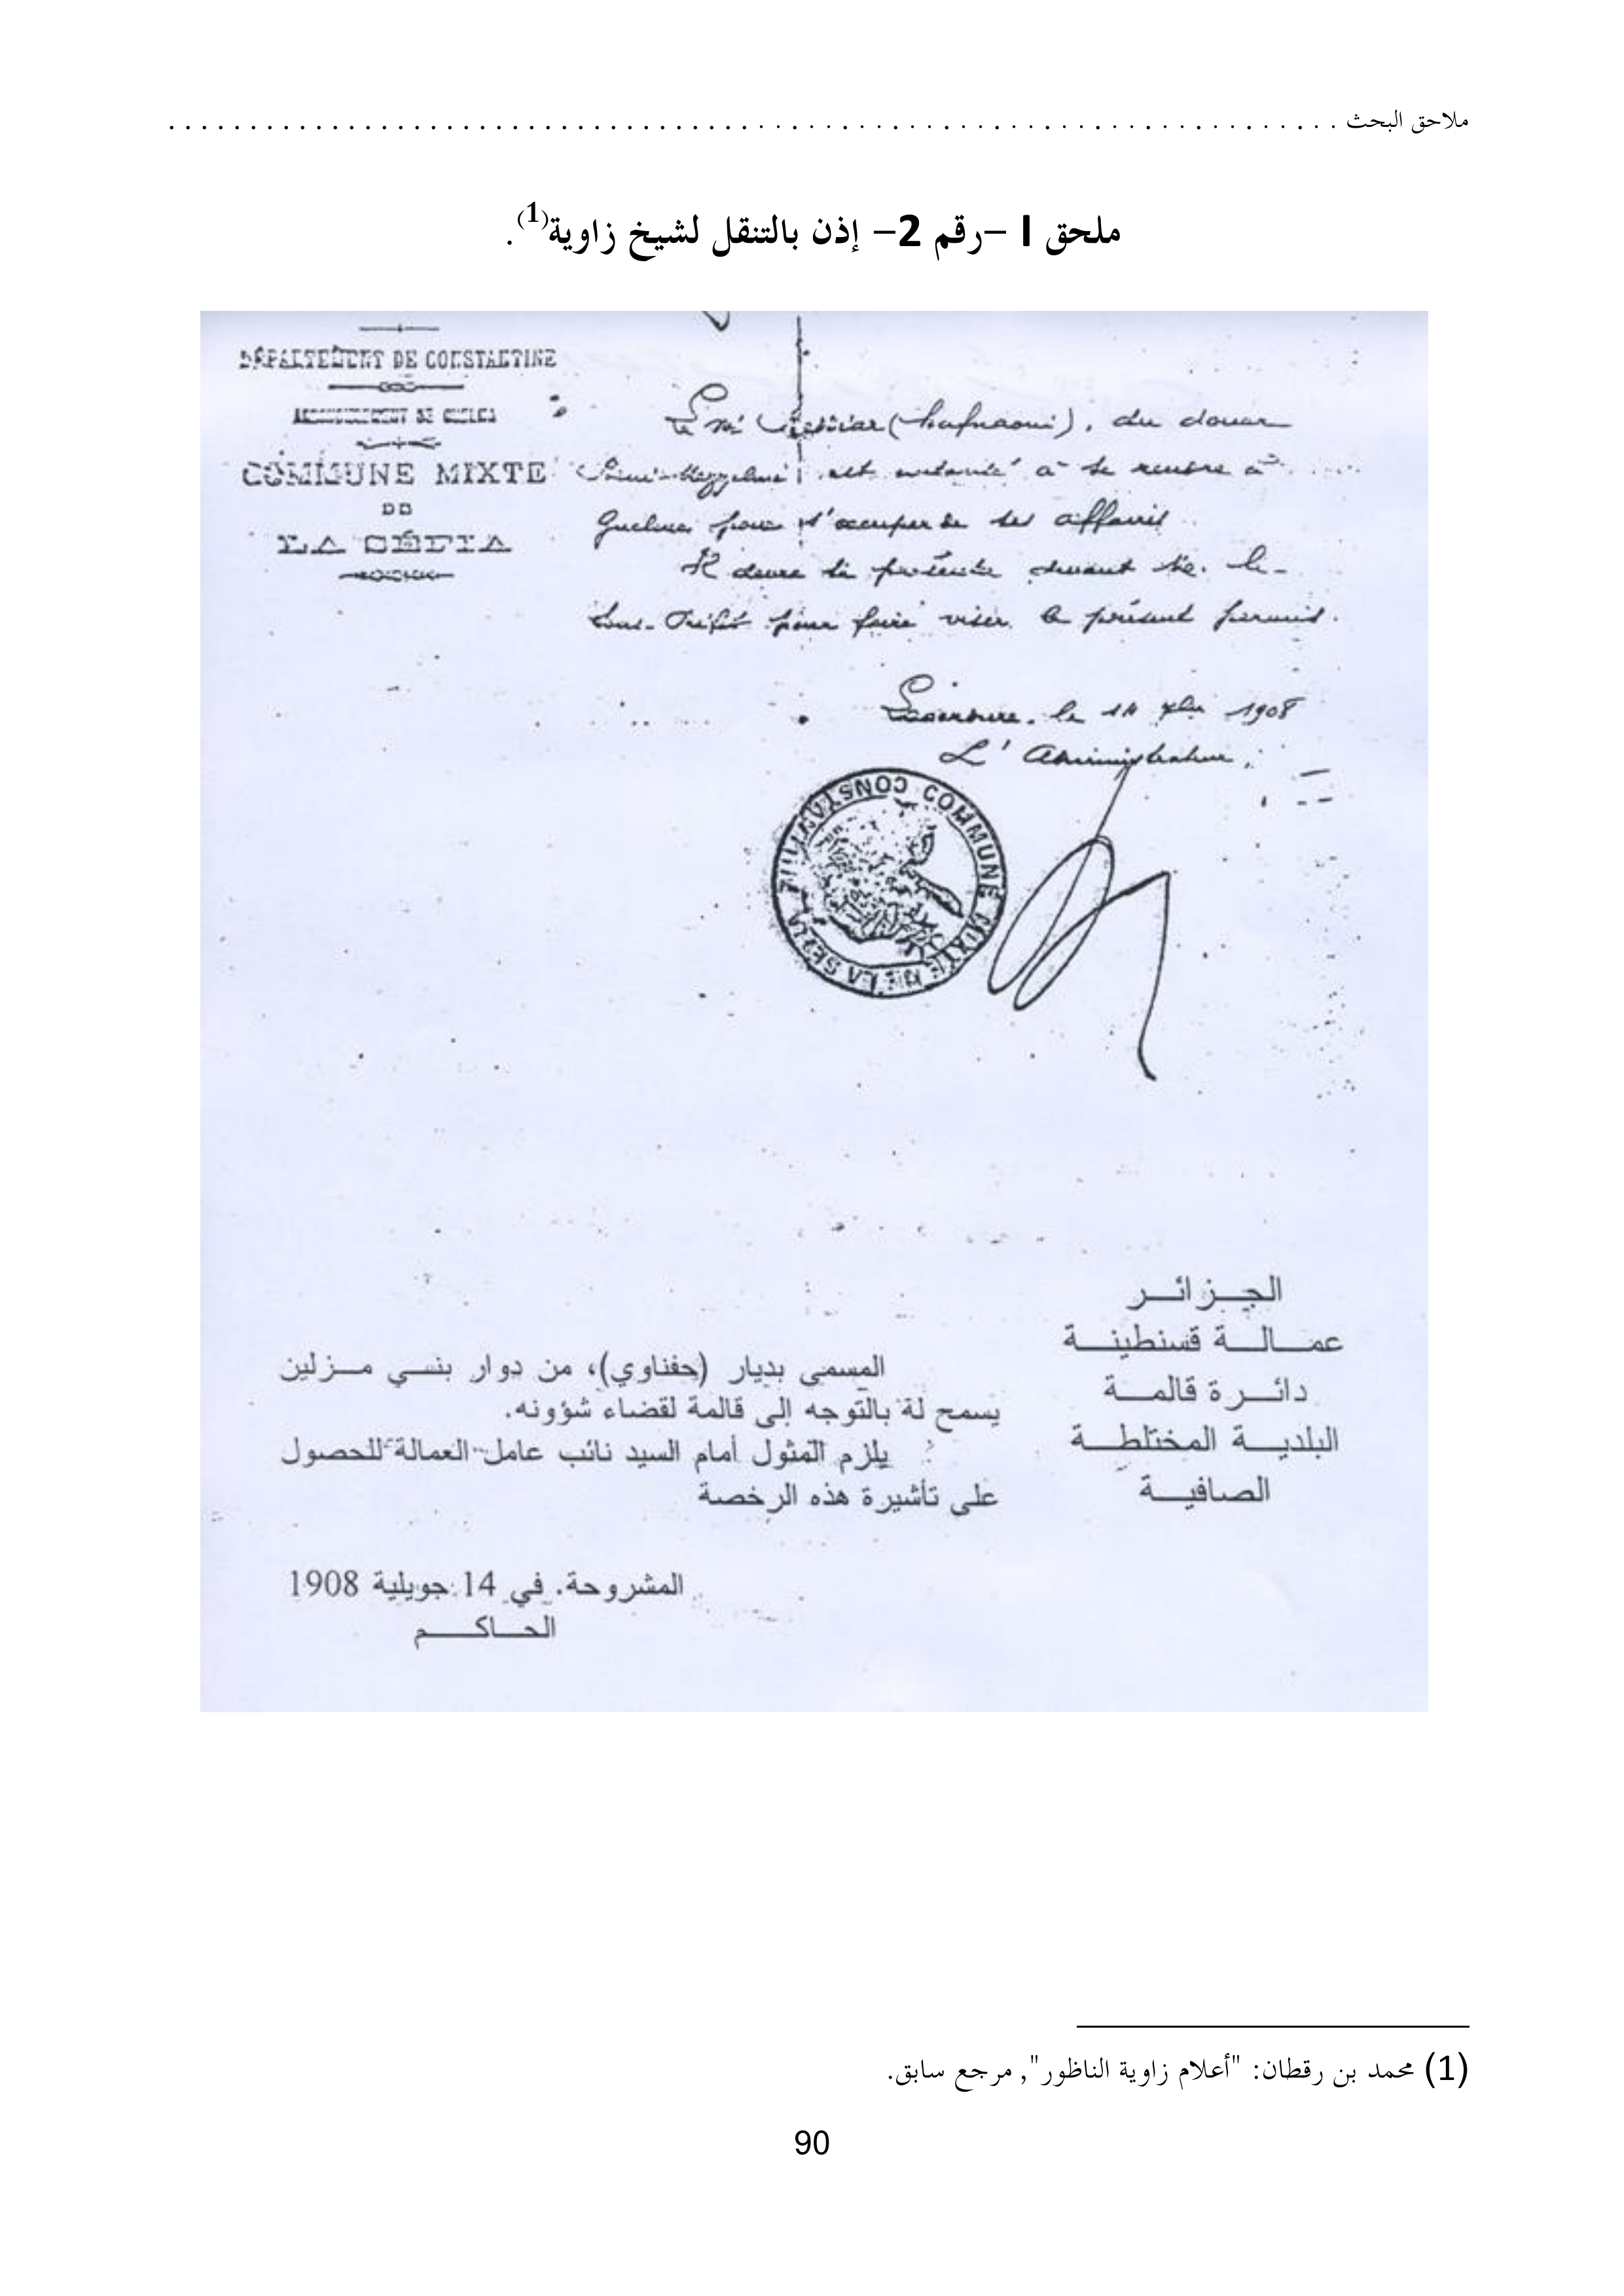 ملاحق البحث
ملحق I –رقم 2– إذن بالتنقل لشيخ زاوية(1).
DÉPARTEMENT DE CONSTANTINE
ARRONDISSEMENT DE GUELMA
COMMUNE MIXTE
DE
LA SÉFIA
Le né (Hafnaoui), du douar
est autorisé à se rendre à
Guelma pour s'occuper de ses affaires
Il devra se présenter devant Mr. le
Sous-Préfet pour faire viser le présent permis.
le 14 1908
L'Administrateur,
COMMUNE MIXTE DE LA SEFIA CONSTANTINE
الجزائر
عمالة قسنطينة
دائرة قالمة
البلدية المختلطة
الصافية
المسمى بديار (حفناوي)، من دوار بني مزلين
يسمح له بالتوجه إلى قالمة لقضاء شؤونه.
يلزم المثول أمام السيد نائب عامل العمالة للحصول
على تأشيرة هذه الرخصة
المشروحة. في 14 جويلية 1908
الحاكم
(1) محمد بن رقطان: "أعلام زاوية الناظور", مرجع سابق.
90